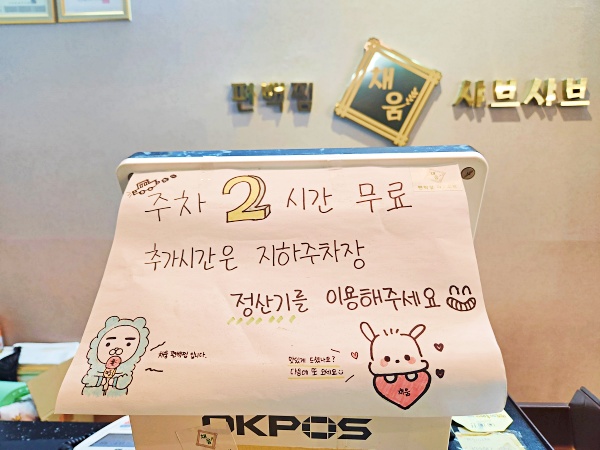 편백찜 채움 샤브샤브
주차 2시간 무료
추가시간은 지하주차장
정산기를 이용해주세요
채움 편백찜 입니다.
맛있게 드셨나요?
다음에 또 오세요
채움
OKPOS